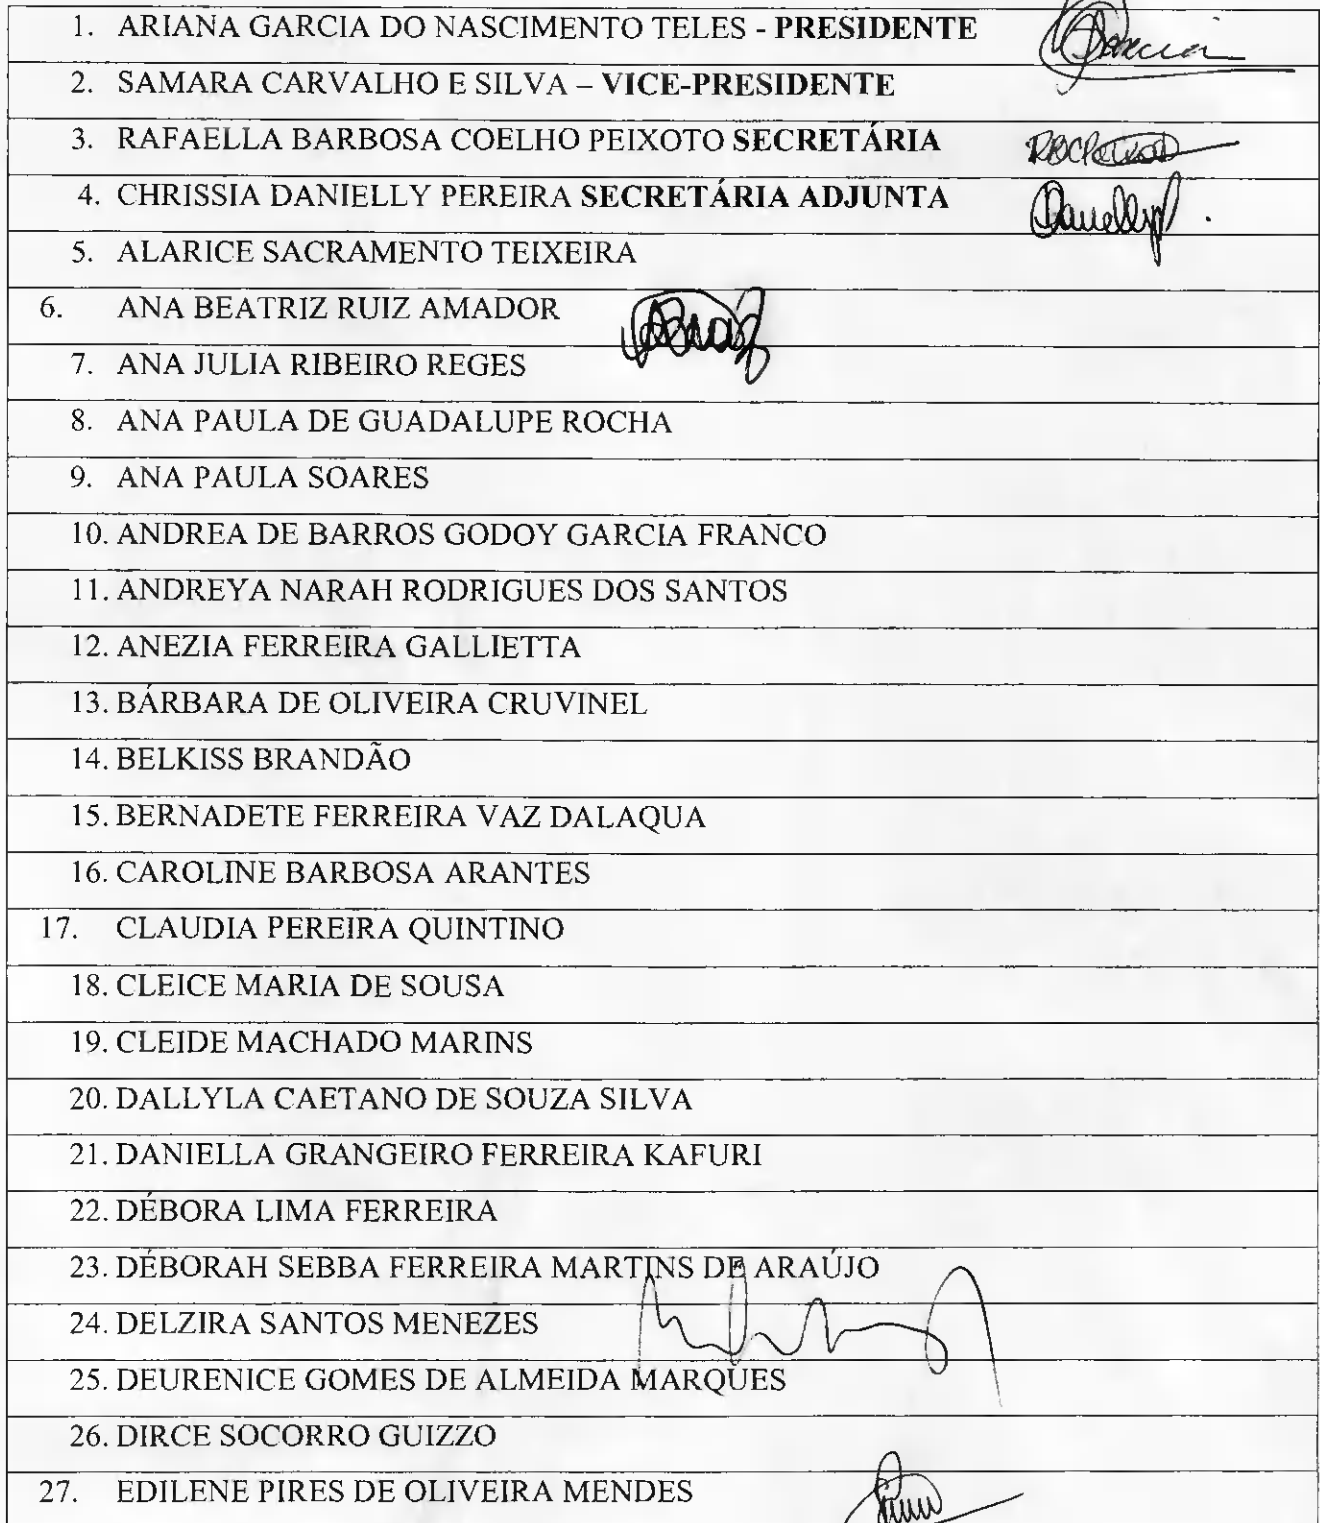 1. ARIANA GARCIA DO NASCIMENTO TELES - PRESIDENTE
2. SAMARA CARVALHO E SILVA – VICE-PRESIDENTE
3. RAFAELLA BARBOSA COELHO PEIXOTO SECRETÁRIA
4. CHRISSIA DANIELLY PEREIRA SECRETÁRIA ADJUNTA
5. ALARICE SACRAMENTO TEIXEIRA
6. ANA BEATRIZ RUIZ AMADOR
7. ANA JULIA RIBEIRO REGES
8. ANA PAULA DE GUADALUPE ROCHA
9. ANA PAULA SOARES
10. ANDREA DE BARROS GODOY GARCIA FRANCO
11. ANDREYA NARAH RODRIGUES DOS SANTOS
12. ANEZIA FERREIRA GALLIETTA
13. BÁRBARA DE OLIVEIRA CRUVINEL
14. BELKISS BRANDÃO
15. BERNADETE FERREIRA VAZ DALAQUA
16. CAROLINE BARBOSA ARANTES
17. CLAUDIA PEREIRA QUINTINO
18. CLEICE MARIA DE SOUSA
19. CLEIDE MACHADO MARINS
20. DALLYLA CAETANO DE SOUZA SILVA
21. DANIELLA GRANGEIRO FERREIRA KAFURI
22. DÉBORA LIMA FERREIRA
23. DÉBORAH SEBBA FERREIRA MARTINS DE ARAÚJO
24. DELZIRA SANTOS MENEZES
25. DEURENICE GOMES DE ALMEIDA MARQUES
26. DIRCE SOCORRO GUIZZO
27. EDILENE PIRES DE OLIVEIRA MENDES